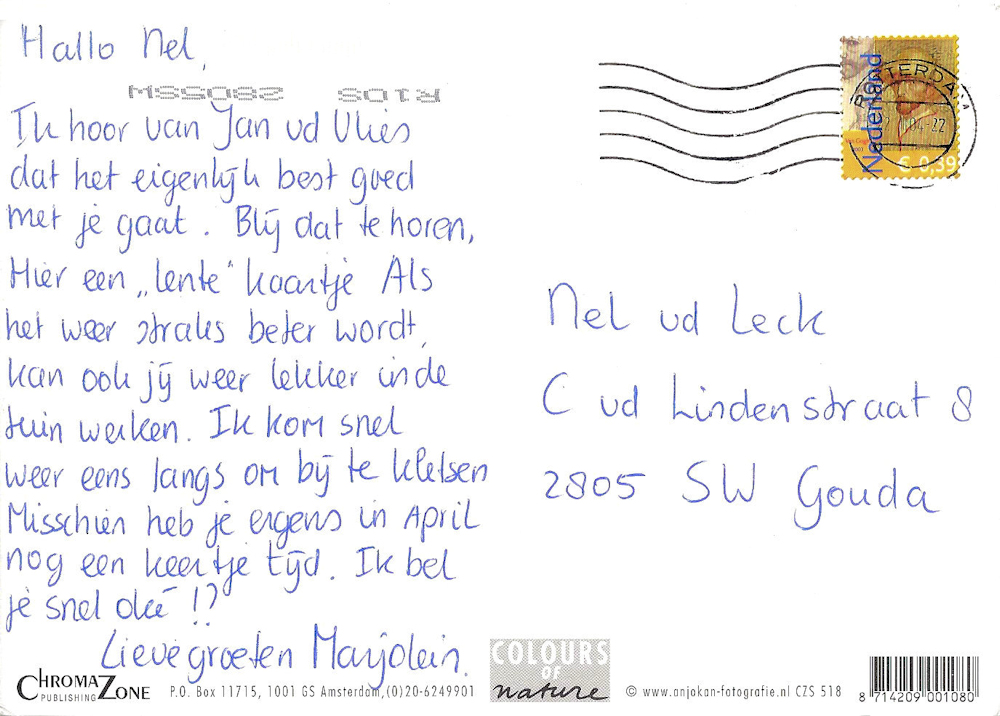 Hallo Nel,
Ik hoor van Jan vd Vlies
dat het eigenlijk best goed
met je gaat. Blij dat te horen,
Hier een „lente" kaartje Als
het weer straks beter wordt,
kan ook jij weer lekker in de
tuin werken. Ik kom snel
weer eens langs om bij te kletsen
Misschien heb je ergens in April
nog een keertje tijd. Ik bel
je snel oké !?
Lieve groeten Marjolein.
Nederland
€ 0,39
ROTTERDAM
Nel vd Leck
C vd Lindenstraat 8
2805 SW Gouda
CHROMAZONE
PUBLISHING
P.O. Box 11715, 1001 GS Amsterdam,(0)20-6249901
COLOURS
OF
nature
© www.anjokan-fotografie.nl CZS 518
8 714209 001080